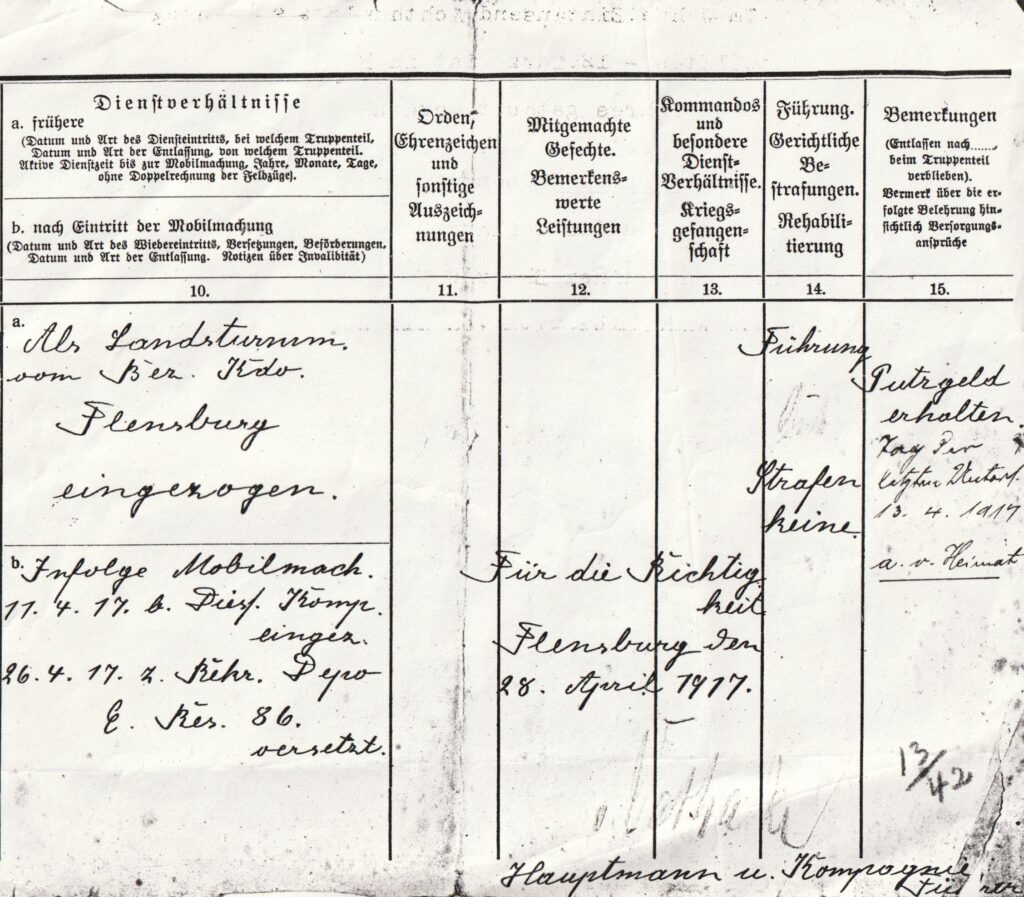 Dienstverhältnisse
a. frühere
(Datum und Art des Diensteintritts, bei welchem Truppenteil,
Datum und Art der Entlassung, von welchem Truppenteil.
Aktive Dienstzeit bis zur Mobilmachung, Jahre, Monate, Tage,
ohne Doppelrechnung der Feldzüge).
b. nach Eintritt der Mobilmachung
(Datum und Art des Wiedereintritts, Versetzungen, Beförderungen,
Datum und Art der Entlassung. Notizen über Invalidität)
Orden,
Ehrenzeichen
und
sonstige
Auszeich-
nungen
Mitgemachte
Gefechte.
Bemerkens-
werte
Leistungen
Kommandos
und
besondere
Dienst-
Verhältnisse.
Kriegs-
gefangen-
schaft
Führung.
Gerichtliche
Be-
strafungen.
Rehabili-
tierung
Bemerkungen
(Entlassen nach......,
beim Truppenteil
verblieben).
Vermerk über die er-
folgte Belehrung hin-
sichtlich Versorgungs-
ansprüche
10.
11.
12.
13.
14.
15.
a.
Als Landsturmm.
vom Bez. Kdo.
Flensburg
eingezogen.
b. Infolge Mobilmach.
11. 4. 17. b. Dies. Komp.
eingez.
26. 4. 17. z. Rekr. Depo
E. Res. 86.
versetzt.
Für die Richtig
keit
Flensburg den
28. April 1917.
Hauptmann u. Kompagnie
Führer
Führung
Strafen
keine.
Putzgeld
erhalten.
Tag der
letzten
13. 4. 1917
a. v. Heimat
13/42